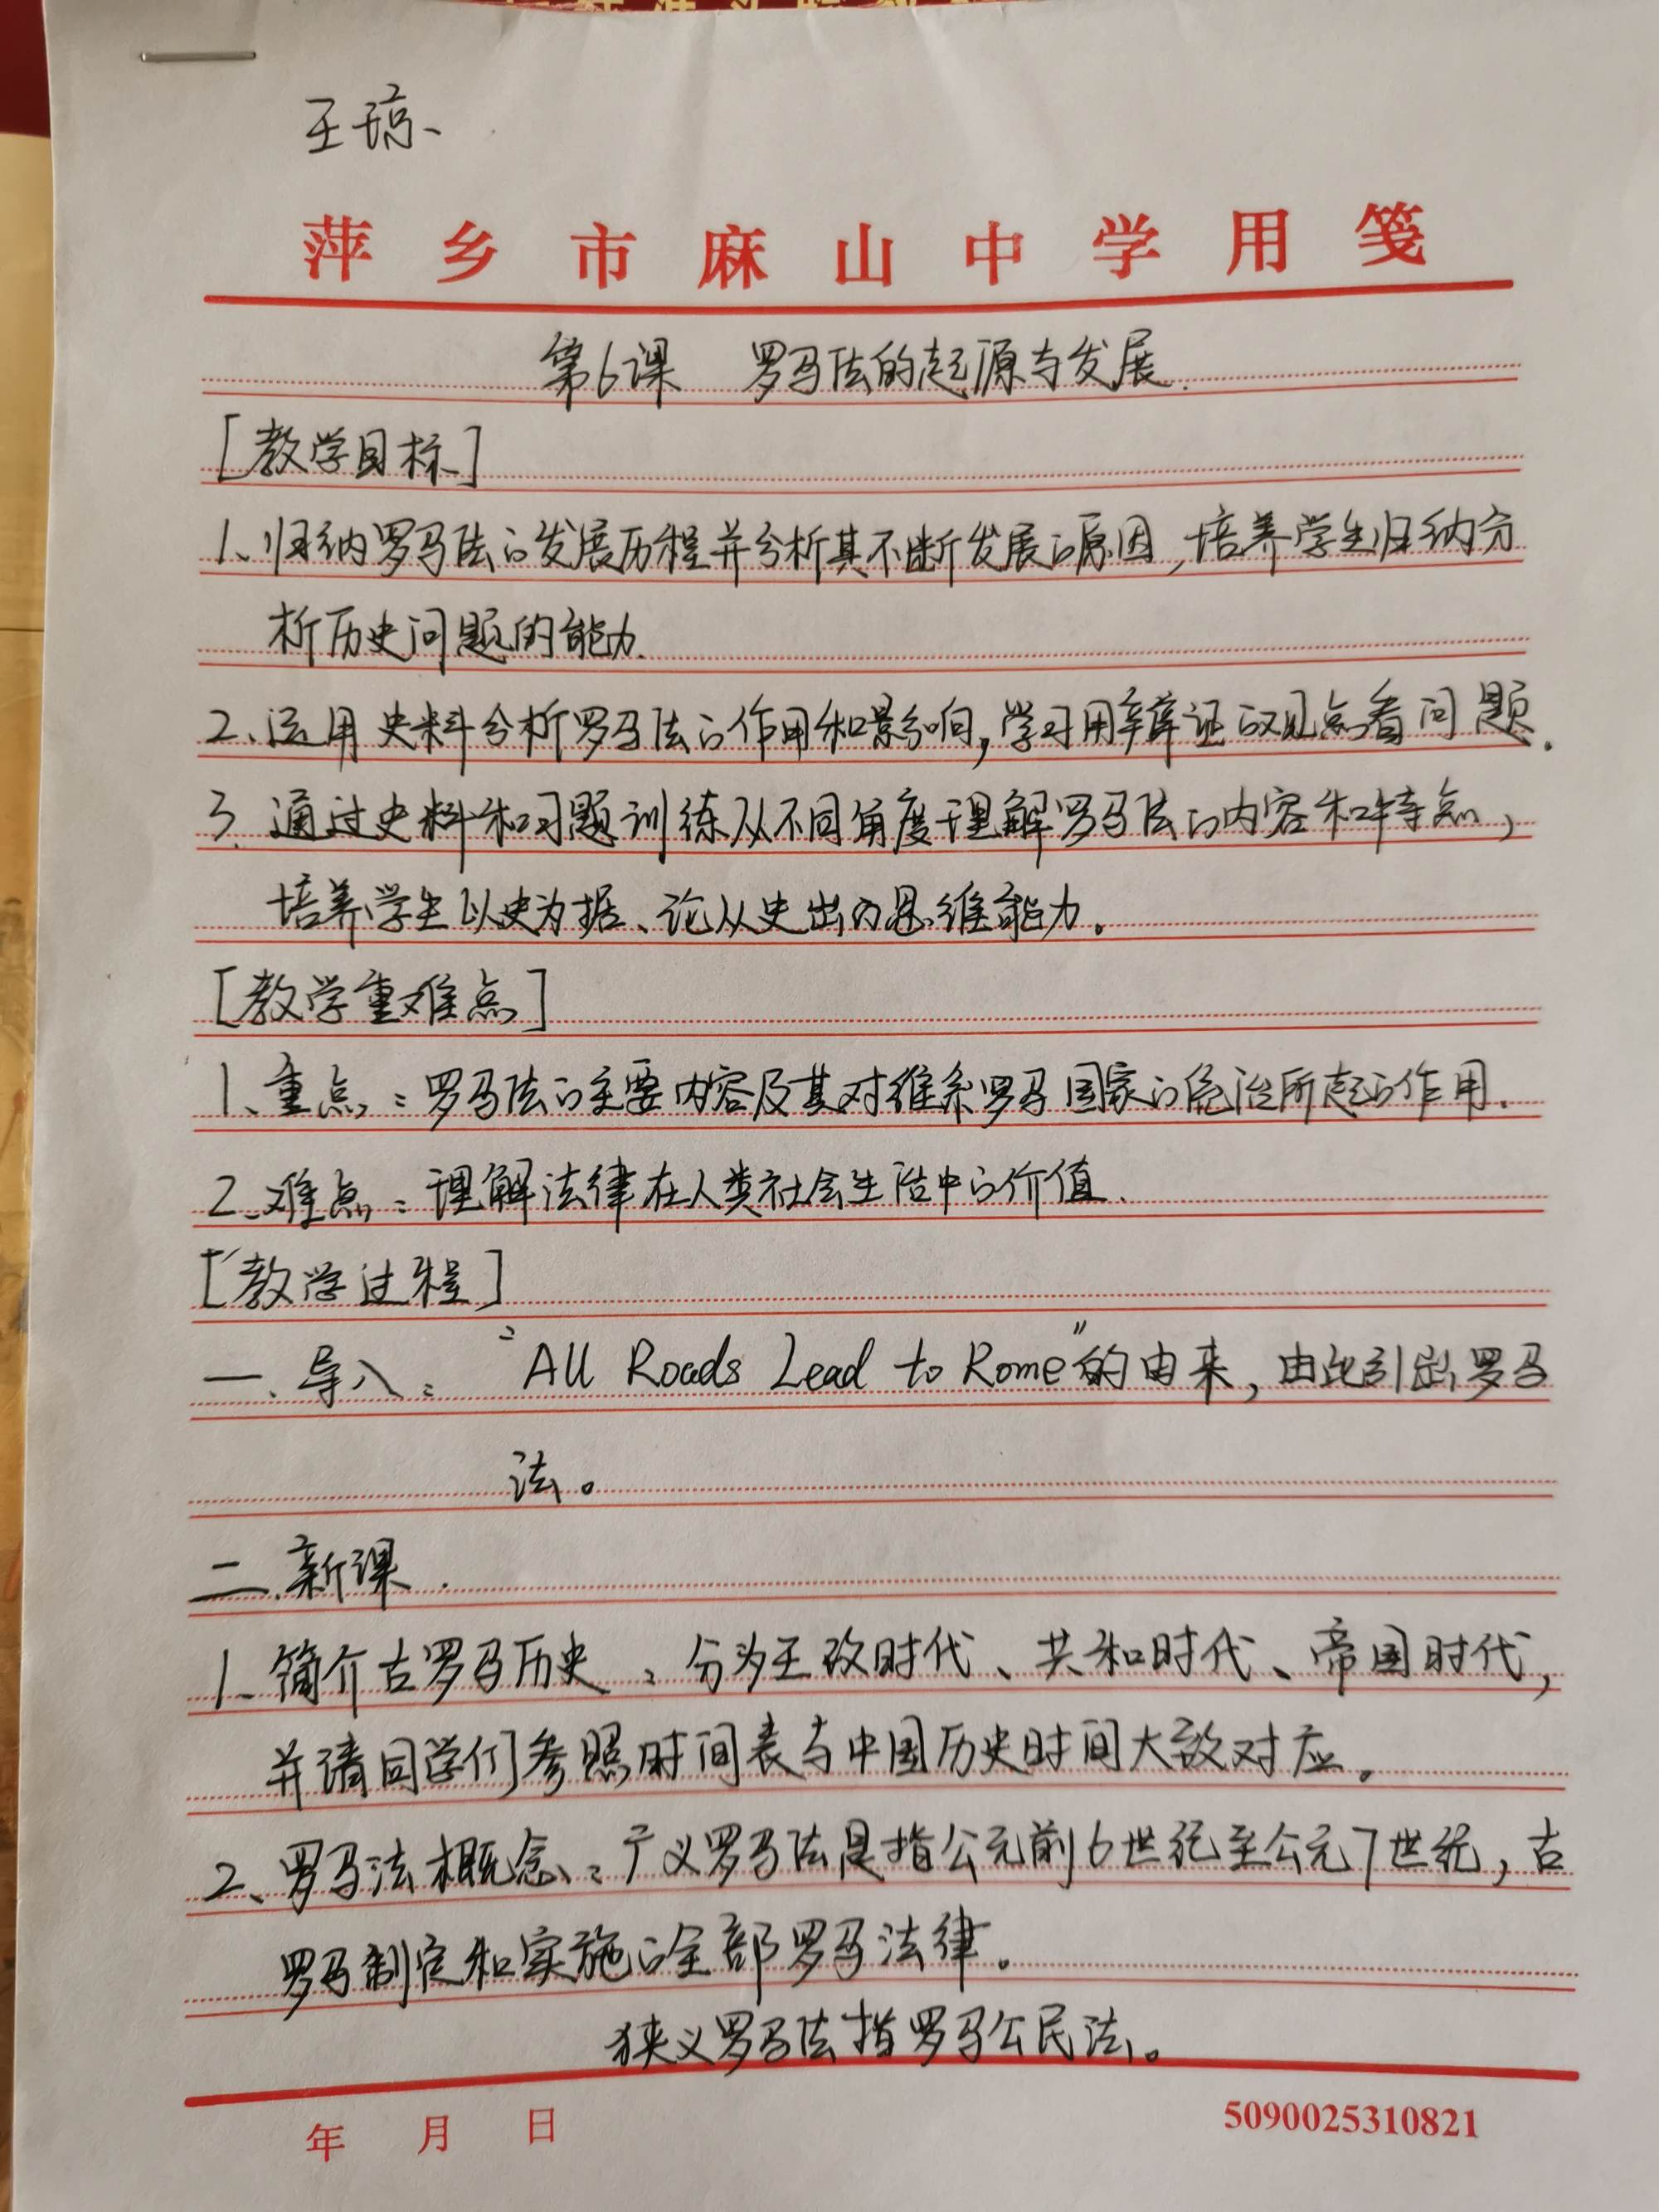 王琼
萍乡市麻山中学用笺
第6课 罗马法的起源与发展.
[教学目标]
1、归纳罗马法的发展历程并分析其不断发展的原因,培养学生归纳分
析历史问题的能力.
2、运用史料分析罗马法的作用和影响,学习用辩证的观点看问题.
3.通过史料和习题训练从不同角度理解罗马法的内容和特点,
培养学生以史为据、论从史出的思维能力。
[教学重难点]
1、重点:罗马法的主要内容及其对维系罗马国家的统治所起的作用.
2、难点:理解法律在人类社会生活中的价值.
[教学过程]
一.导入:“All Roads Lead to Rome”的由来,由此引出罗马
法。
二.新课.
1、简介古罗马历史:分为王政时代、共和时代、帝国时代,
并请同学们参照时间表与中国历史时间大致对应。
2、罗马法概念:广义罗马法是指公元前6世纪至公元7世纪,古
罗马制定和实施的全部罗马法律。
狭义罗马法指罗马公民法。
年 月 日
5090025310821